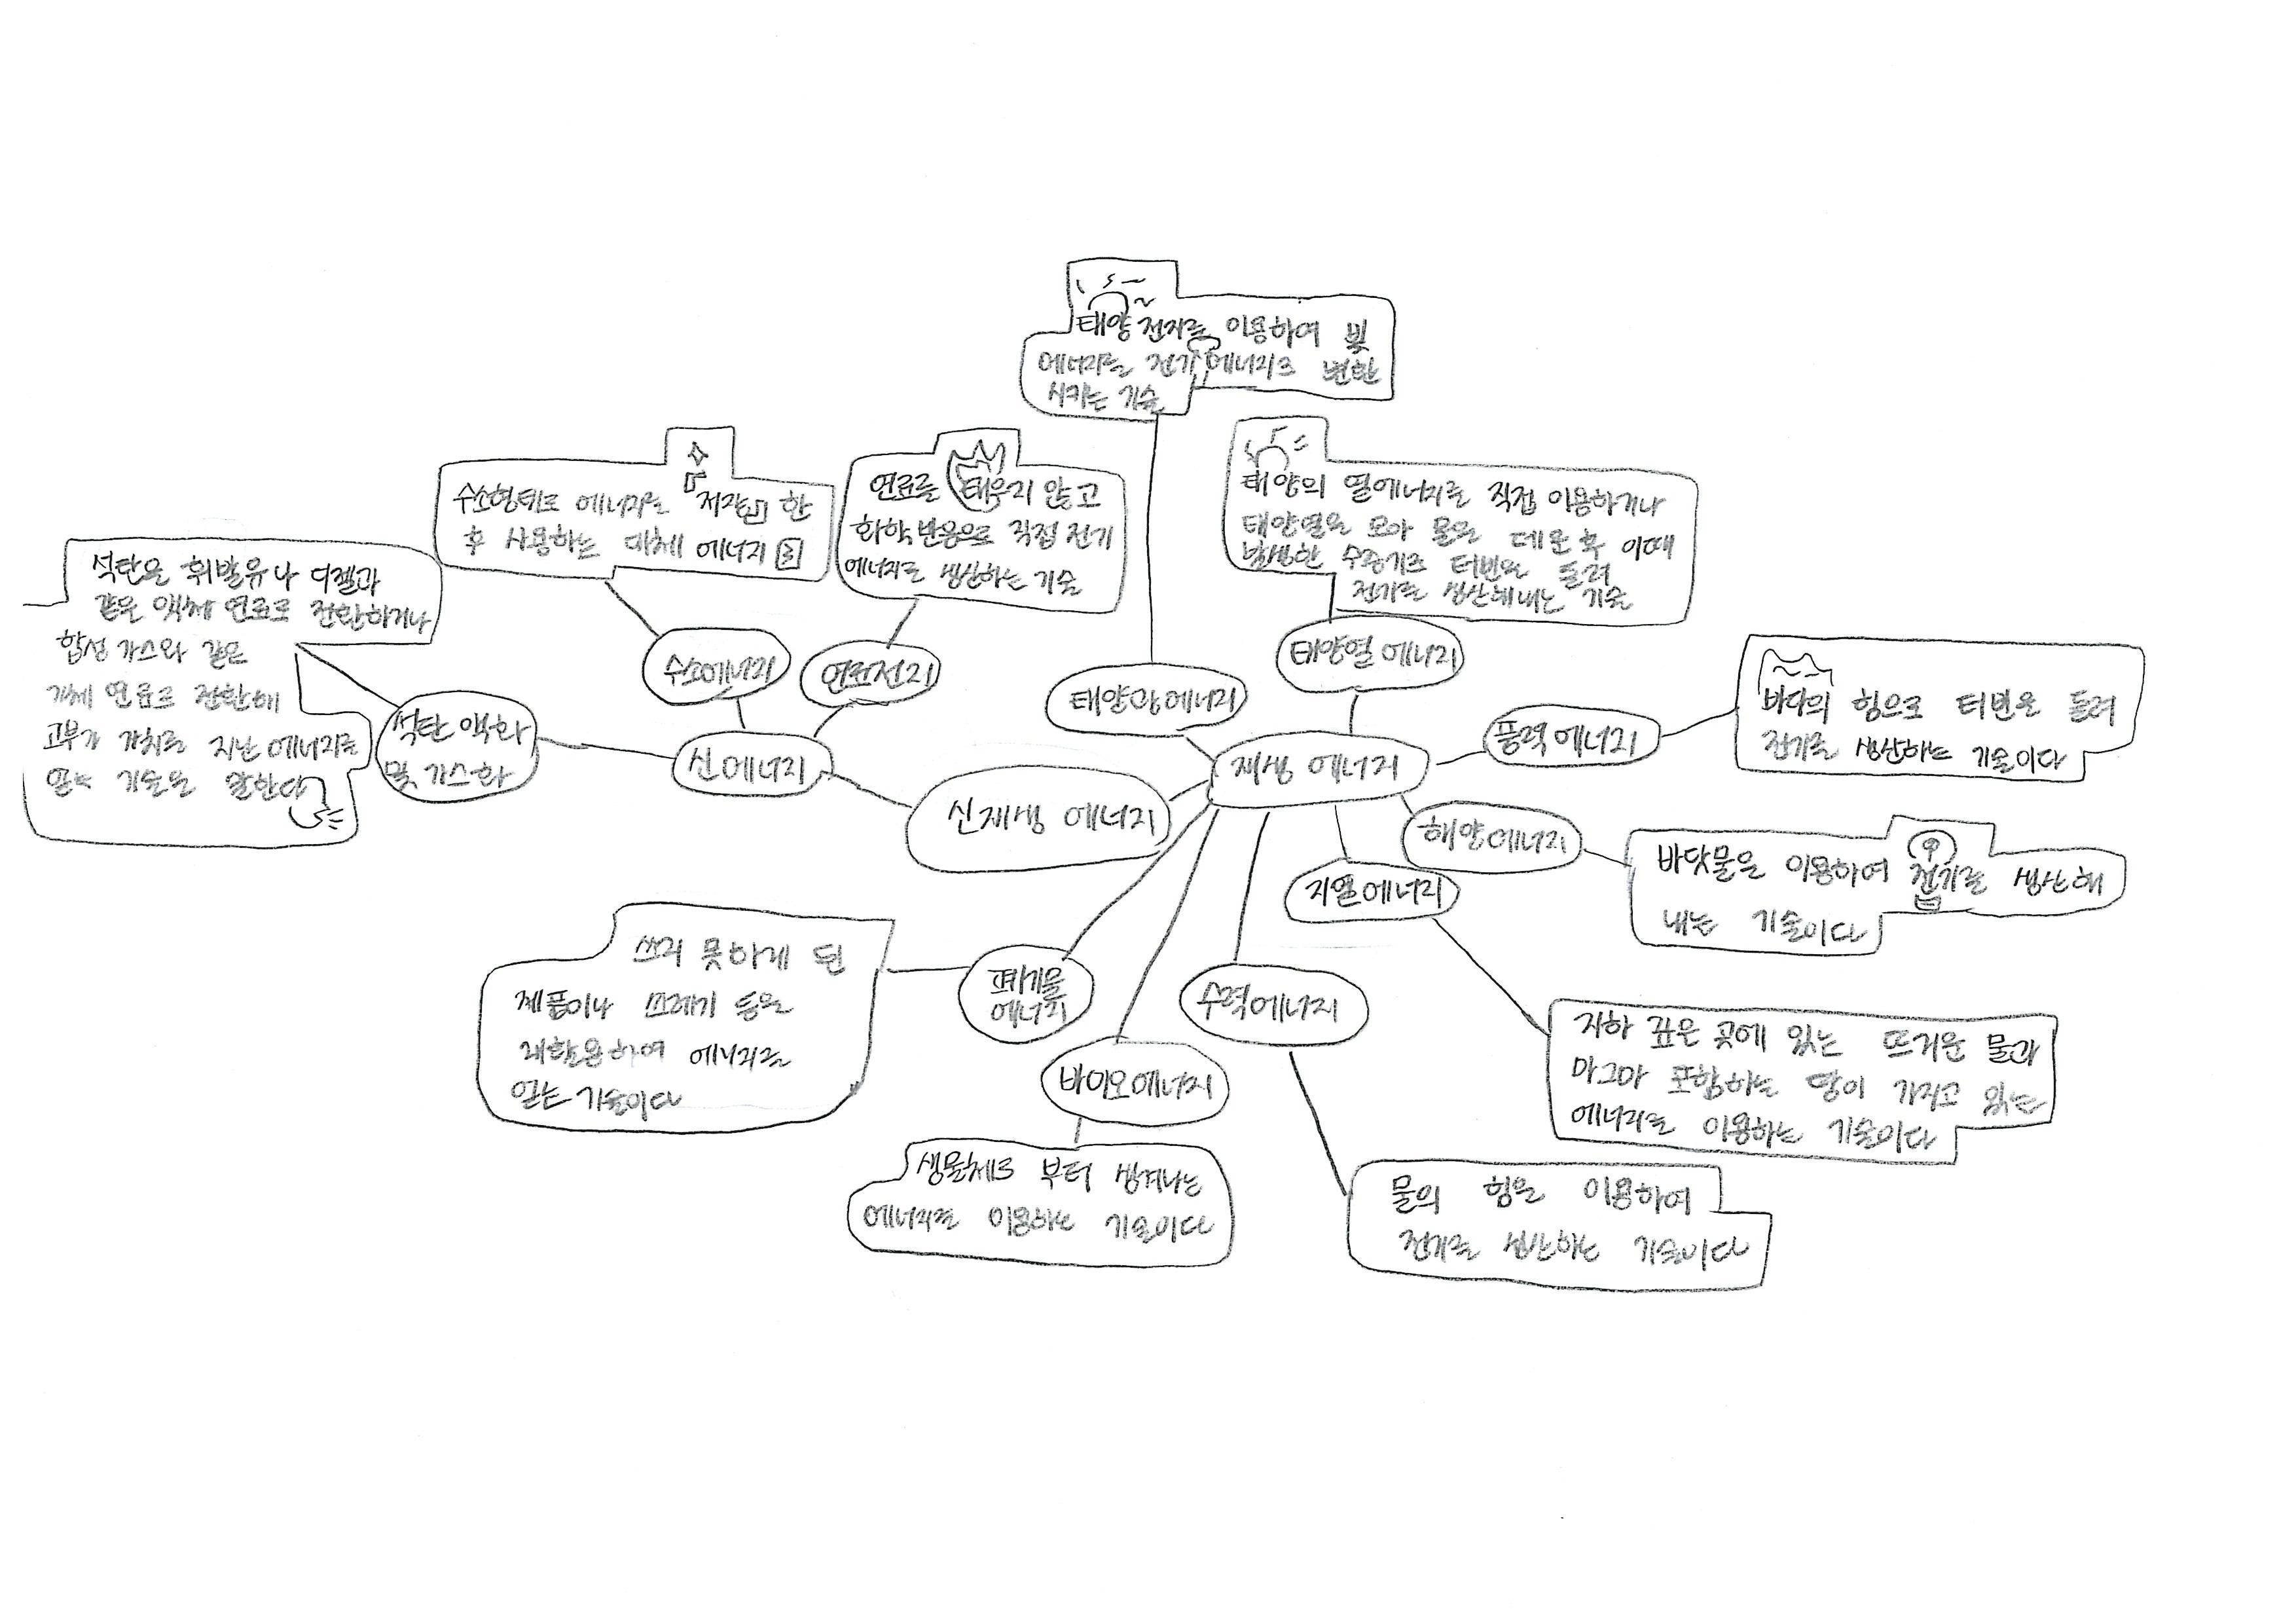 태양 전지를 이용하여 빛
에너지를 전기 에너지로 변환
시키는 기술
수소형태로 에너지를 저장 한
후 사용하는 대체 에너지
연료를 태우지 않고
화학반응으로 직접 전기
에너지로 생산하는 기술
태양의 열에너지를 직접 이용하거나
태양열을 모아 물을 데운 후 이때
발생한 수증기로 터빈을 돌려
전기를 생산해내는 기술
석탄을 휘발유나 디젤과
같은 액체 연료로 전환하거나
합성 가스와 같은
기체 연료로 전환해
고부가 가치를 지닌 에너지를
얻는 기술을 말한다
수소에너지
연료전지
태양광에너지
태양열 에너지
석탄 액화
및 가스화
신에너지
신재생 에너지
재생 에너지
풍력 에너지
바다의 힘으로 터빈을 돌려
전기를 생산하는 기술이다
해양에너지
바닷물을 이용하여 전기를 생산해
내는 기술이다
지열에너지
지하 깊은 곳에 있는 뜨거운 물과
마그마 포함하는 땅이 가지고 있는
에너지를 이용하는 기술이다
수력에너지
물의 힘을 이용하여
전기를 생산하는 기술이다
바이오에너지
생물체로 부터 생겨나는
에너지를 이용하는 기술이다
폐기물
에너지
쓰지 못하게 된
제품이나 쓰레기 등을
재활용하여 에너지를
얻는 기술이다